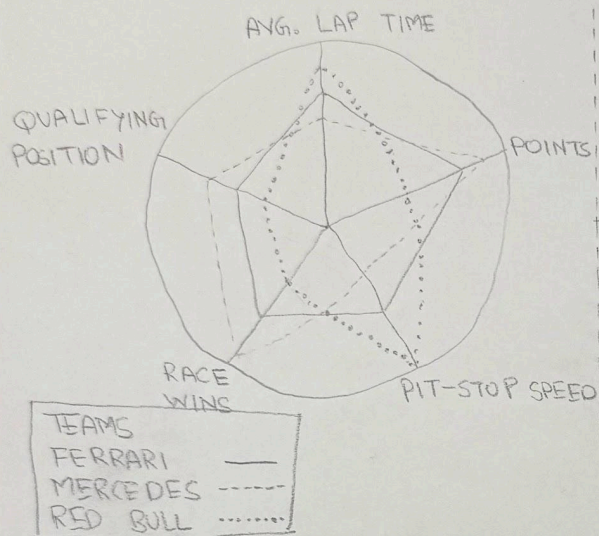 AVG. LAP TIME
QUALIFYING
POSITION
POINTS
RACE
WINS
PIT-STOP SPEED
TEAMS
FERRARI
MERCEDES
RED BULL